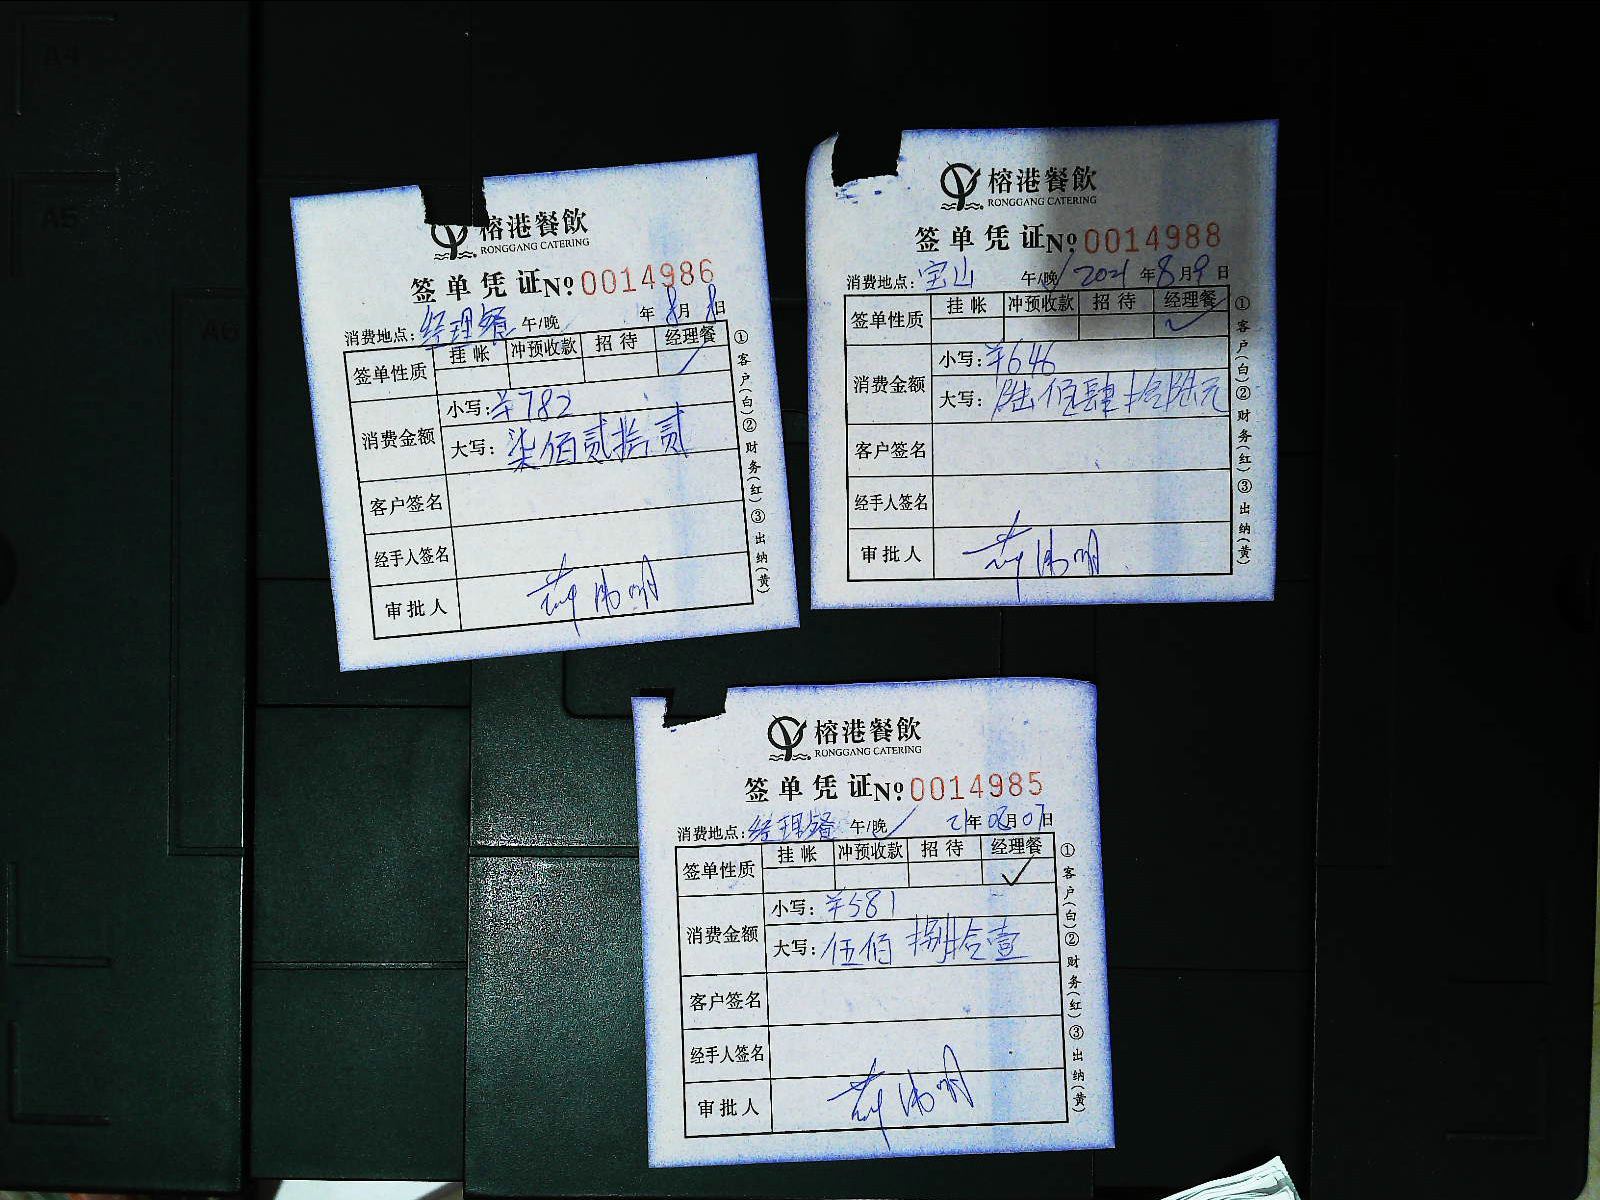 榕港餐飲
RONGGANG CATERING
签单凭证 No 0014986
消费地点: 经理餐 午/晚 年 8月 8日
签单性质 挂帐 冲预收款 招待 经理餐
消费金额 小写: ¥782
大写: 柒佰贰拾贰
客户签名
经手人签名
审批人
①客户(白)②财务(红)③出纳(黄)
榕港餐飲
RONGGANG CATERING
签单凭证 No 0014988
消费地点: 宝山 午/晚 2021 年 8月 9日
签单性质 挂帐 冲预收款 招待 经理餐
消费金额 小写: ¥646
大写: 陆佰肆拾陆元
客户签名
经手人签名
审批人
①客户(白)②财务(红)③出纳(黄)
榕港餐飲
RONGGANG CATERING
签单凭证 No 0014985
消费地点: 经理餐 午/晚 21年 08月 07日
签单性质 挂帐 冲预收款 招待 经理餐
消费金额 小写: ¥581
大写: 伍佰捌拾壹
客户签名
经手人签名
审批人
①客户(白)②财务(红)③出纳(黄)
A4
A5
A6